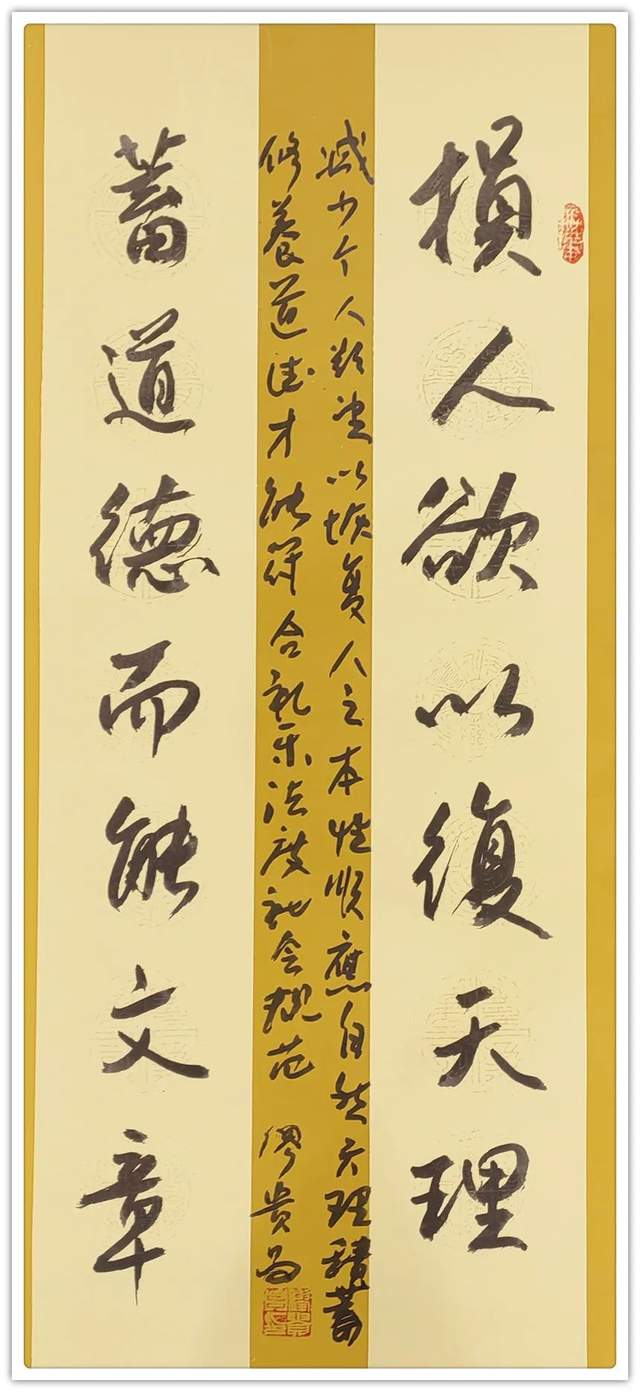 損人欲以復天理
減少个人欲望以恢复人之本性順應自然天理積蓄
修養道德才能符合礼乐法度社会规范
蓄道德而能文章